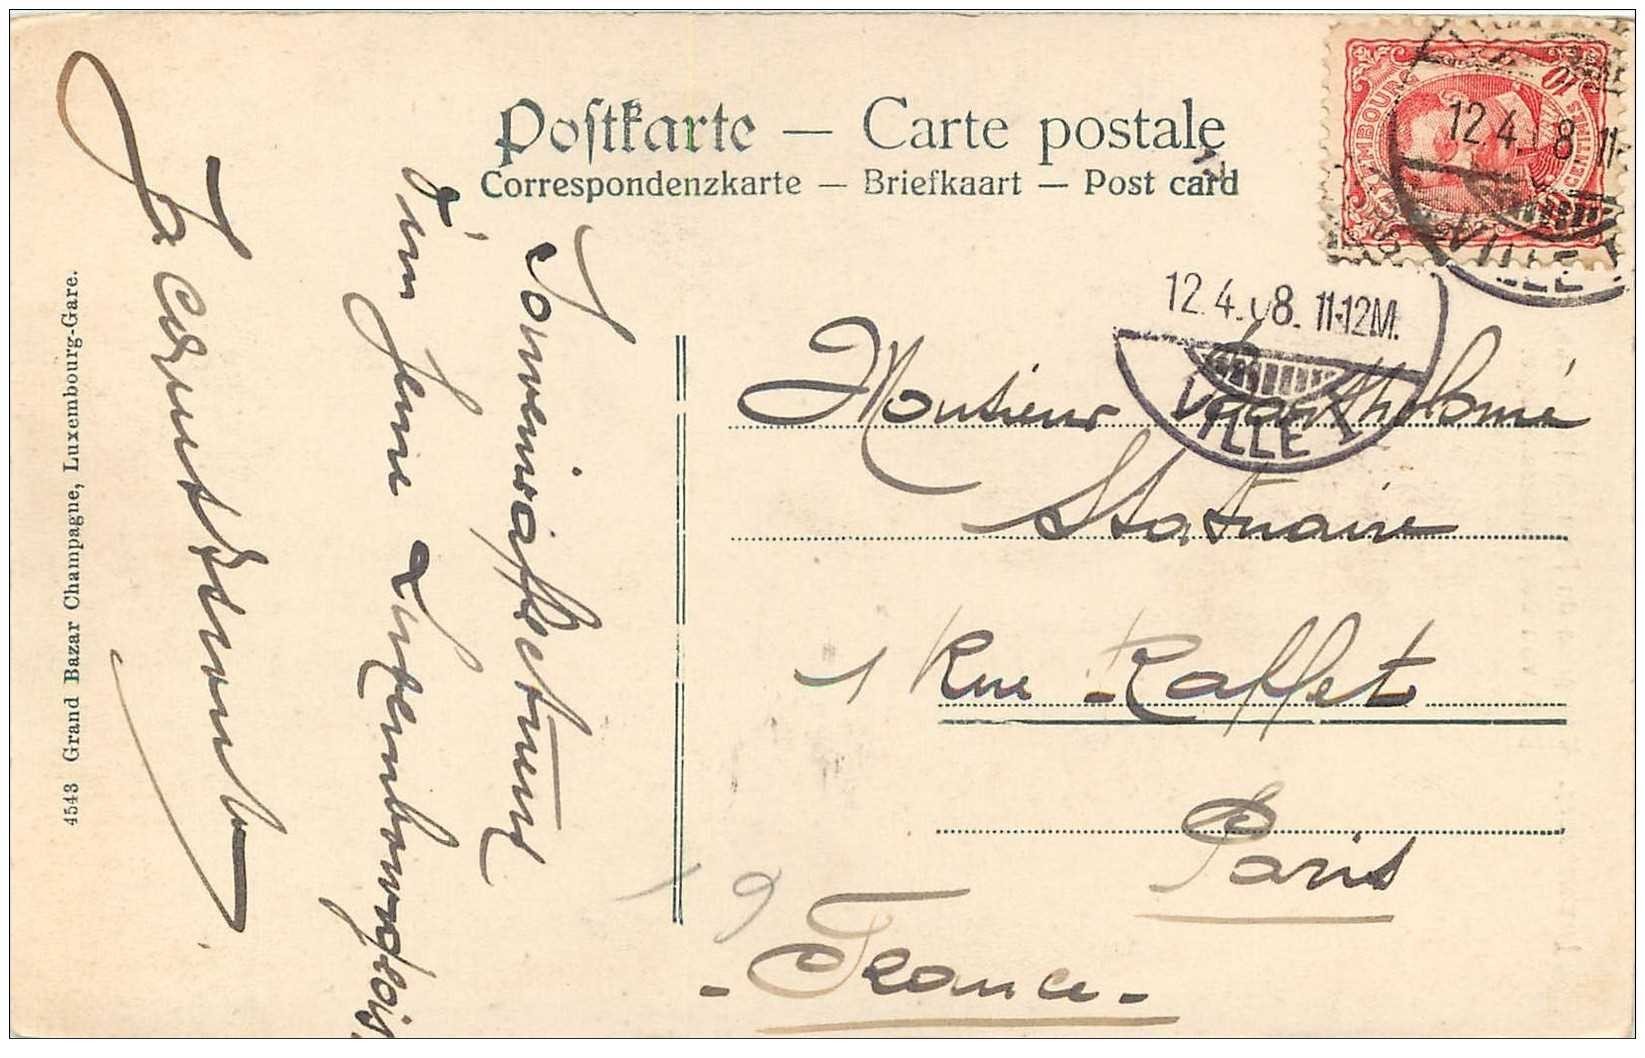 Postkarte — Carte postale
Correspondenzkarte — Briefkaart — Post card
LUXEMBOURG
10 CENTIMES
12.4.08 11-
VILLE
12.4.08. 11-12M.
VILLE 1
Monsieur Bartholomé
Statuaire
1 Rue Raffet
Paris
- France -
19
Souvenirs affectueux
d'un jeune Luxembourgeois,
4543 Grand Bazar Champagne, Luxembourg-Gare.